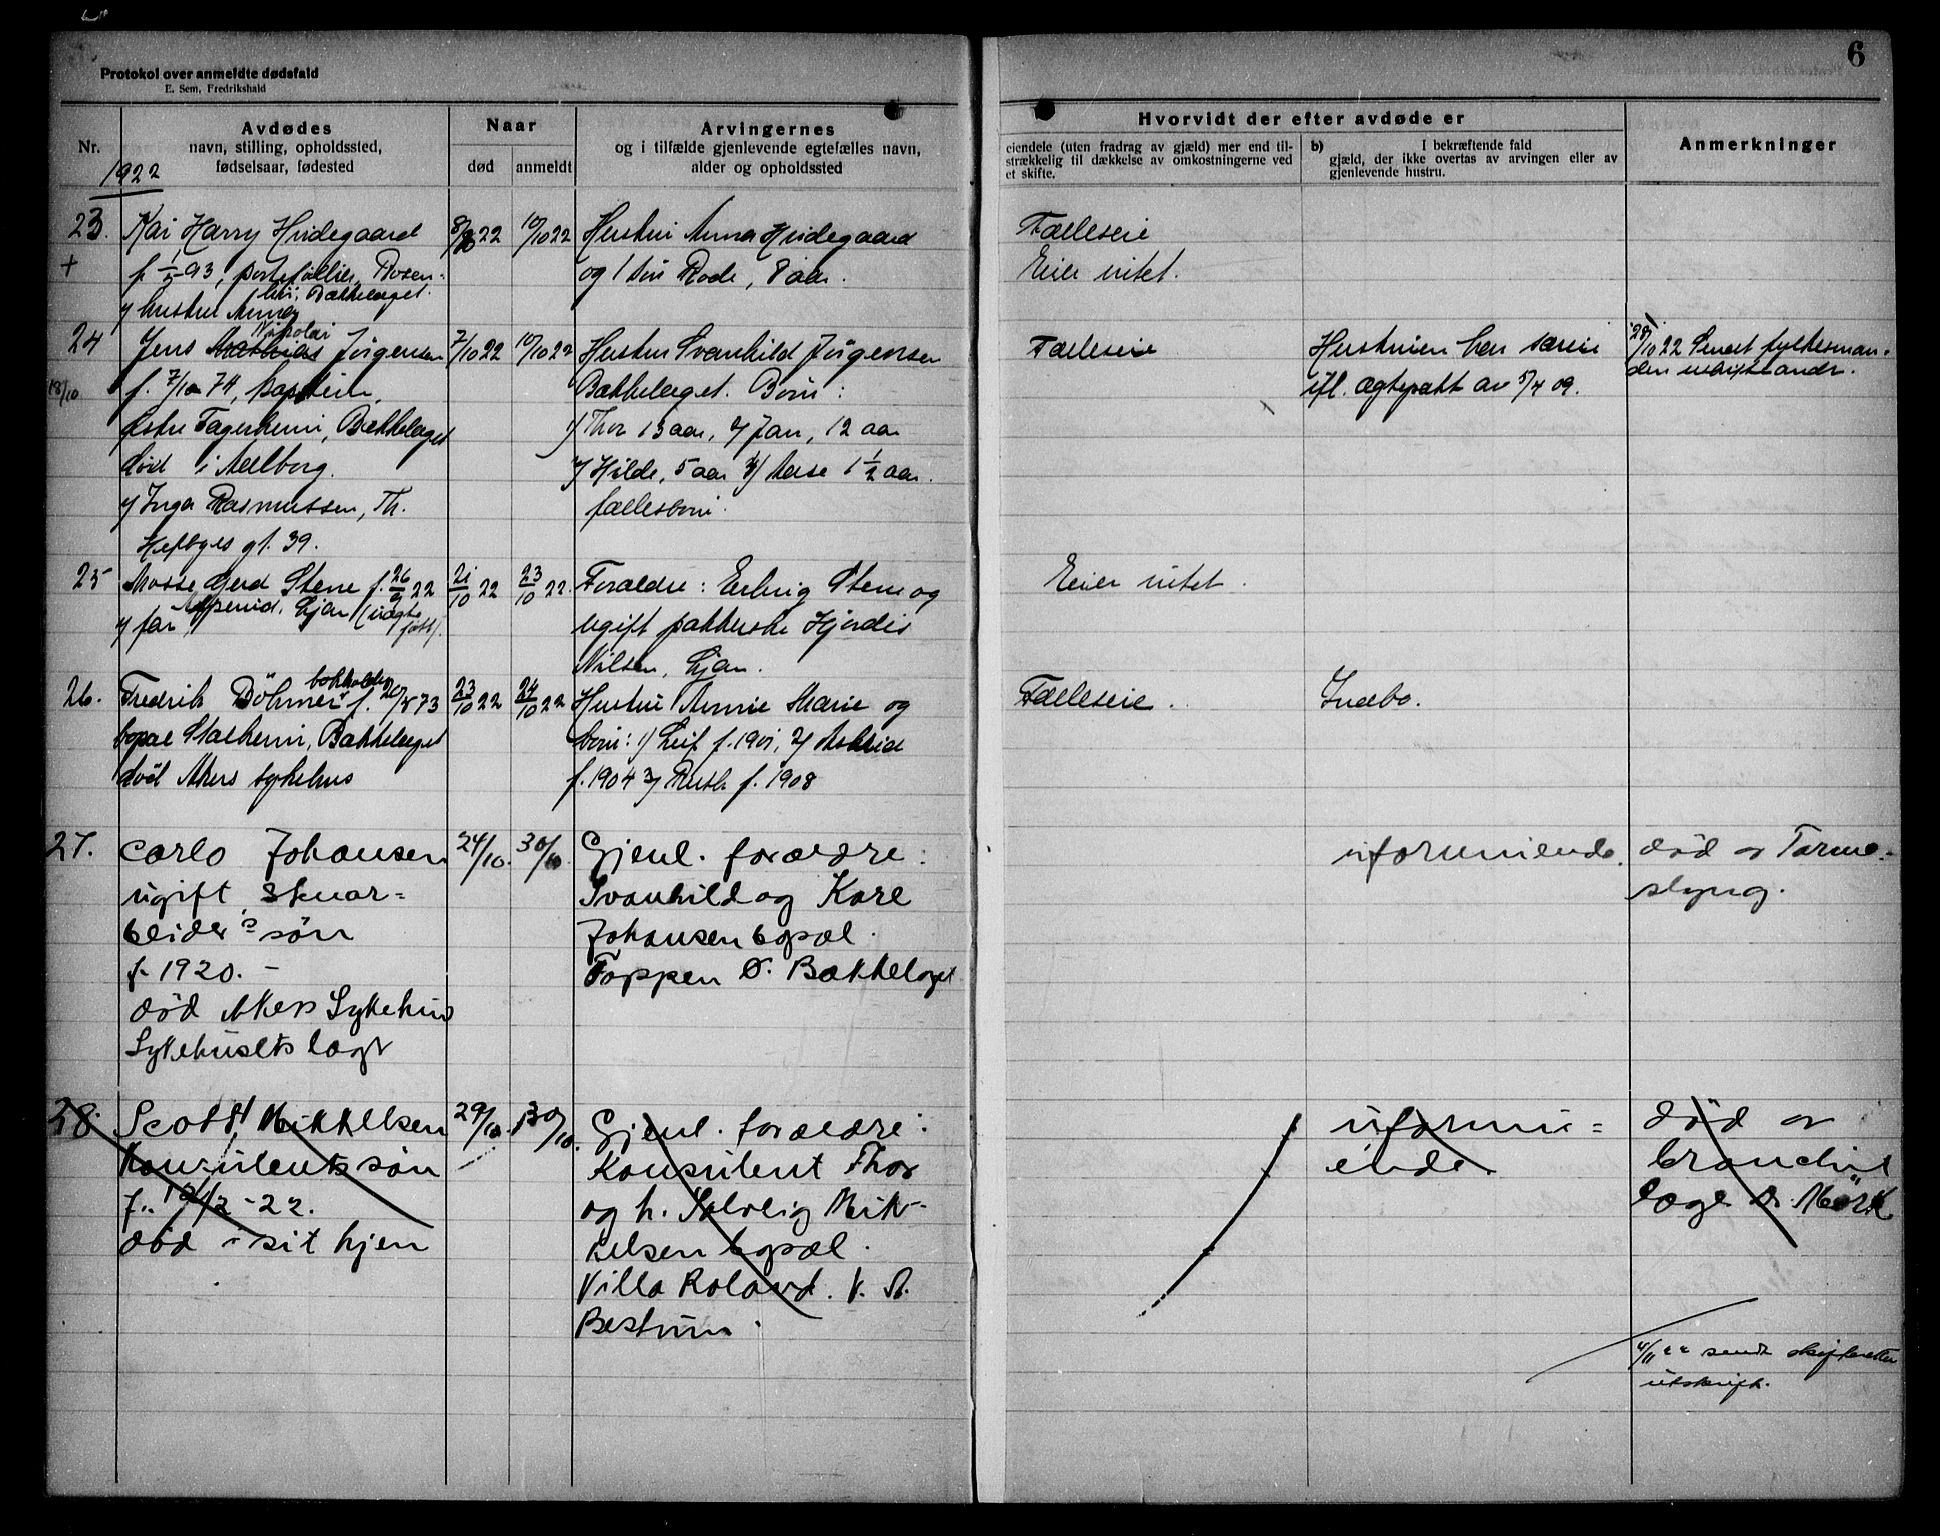 6
Protokol over anmeldte dødsfald
E. Sem, Fredrikshald
Nr.
Avdødes
navn, stilling, opholdssted,
fødselsaar, fødested
Naar
død
anmeldt
Arvingernes
og i tilfælde gjenlevende egtefælles navn,
alder og opholdssted
Hvorvidt der efter avdøde er
eiendele (uten fradrag av gjæld) mer end til-
strækkelig til dækkelse av omkostningerne ved
et skifte.
b) I bekræftende fald
gjæld, der ikke overtas av arvingen eller av
gjenlevende hustru.
Anmerkninger
1922
23.
+
Kai Harry Hvidegaard
f. 1/5 93, Rosen-
Bækkelaget.
1/ hustru Anna
8/10 22
10/10 22
Hustru Anna Hvidegaard
og 1 Rode, 8 aar.
Fælleseie
Eier intet.
24
18/10
Jens Mathias Nikolai Jörgensen
f. 7/10 74, kaptein,
Fagerheim, Bækkelaget
död i Aalborg.
1/ Inga Rasmussen, Th.
Heftyes gt. 39.
7/10 22
10/10 22
Hustru Svanhild Jörgensen
Bækkelaget. Barn:
1/ Thor 13 aar, 2/ Jan, 12 aar
3/ Hilde, 5 aar 4/ Aase 1 1/2 aar.
fællesbarn.
Fælleseie
Hustruen har særeie
ifl. ægtepakt av 5/4 09.
28/10 22 Sendt fylkesman-
den utskift
25
Mosse Gerd Stene f. 26/9 22
1/ far Ljan (uægte
født).
21/10 22
23/10 22
Forældre: Erling Stene og
ugift pakkerske Hjördis
Nilsen, Ljan.
Eier intet.
26.
Fredrik Böhmer bokholder f. 20/5 73
bopæl Stalheim, Bækkelaget
död Akers sykehus
23/10 22
24/10 22
Hustru Annie Marie og
barn: 1/ Leif f. 1901, 2/ Astrid
f. 1904 3/ Ruth f. 1908
Fælleseie.
Indbo.
27.
Carlo Johansen
ugift Stuar-
beider's sön
f. 1920. -
död Akers Sykehus
Sykehusets læge
24/10.
30/10.
Gjenl. foraldre:
Svanhild og Kare
Johansen bopæl.
Toppen Ö. Bækkelaget
uformuende.
död av Tarm-
slyng.
28.
Scott Mikkelsen
Konsulents sön
f. -22.
död i sit hjem
29/10.
30/10.
Gjenl. foraldre:
Konsulent Thor
og h. Solveig Mik-
kelsen bopæl.
Villa Roland. V. A.
Bestum.
uformu-
ende.
död av
bronchit
læge Dr. Mörk
4/11 22 sendt skifteretten
utskrift.